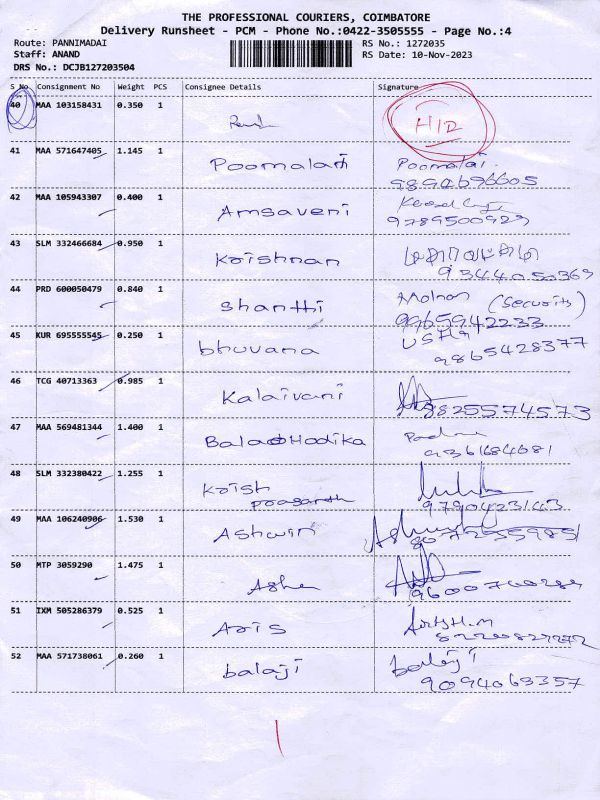 THE PROFESSIONAL COURIERS, COIMBATORE
Delivery Runsheet - PCM - Phone No.:0422-3505555 - Page No.:4
Route: PANNIMADAI RS No.: 1272035
Staff: ANAND RS Date: 10-Nov-2023
DRS No.: DCJB127203504
S No Consignment No Weight PCS Consignee Details Signature
40 MAA 103158431 0.350 1
41 MAA 571647405 1.145 1 Poomalani Poomalai
9894696605
42 MAA 105943307 0.400 1 Amsaveni
9789500929
43 SLM 332466684 0.950 1 Krishnan
9344050369
44 PRD 600050479 0.840 1 Shanthi (Security)
9965942233
45 KUR 695555545 0.250 1 bhuvana USHA
9865428377
46 TCG 40713363 0.985 1 Kalaivani
9825574573
47 MAA 569481344 1.400 1 Padma
9361684681
48 SLM 332380422 1.255 1 Krish
prasanth
9790423143
49 MAA 106240906 1.530 1 Ashwin
50 MTP 3059290 1.475 1 Asha
51 IXM 505286379 0.525 1 Aris
52 MAA 571738061 0.260 1 balaji balaji
9094063357